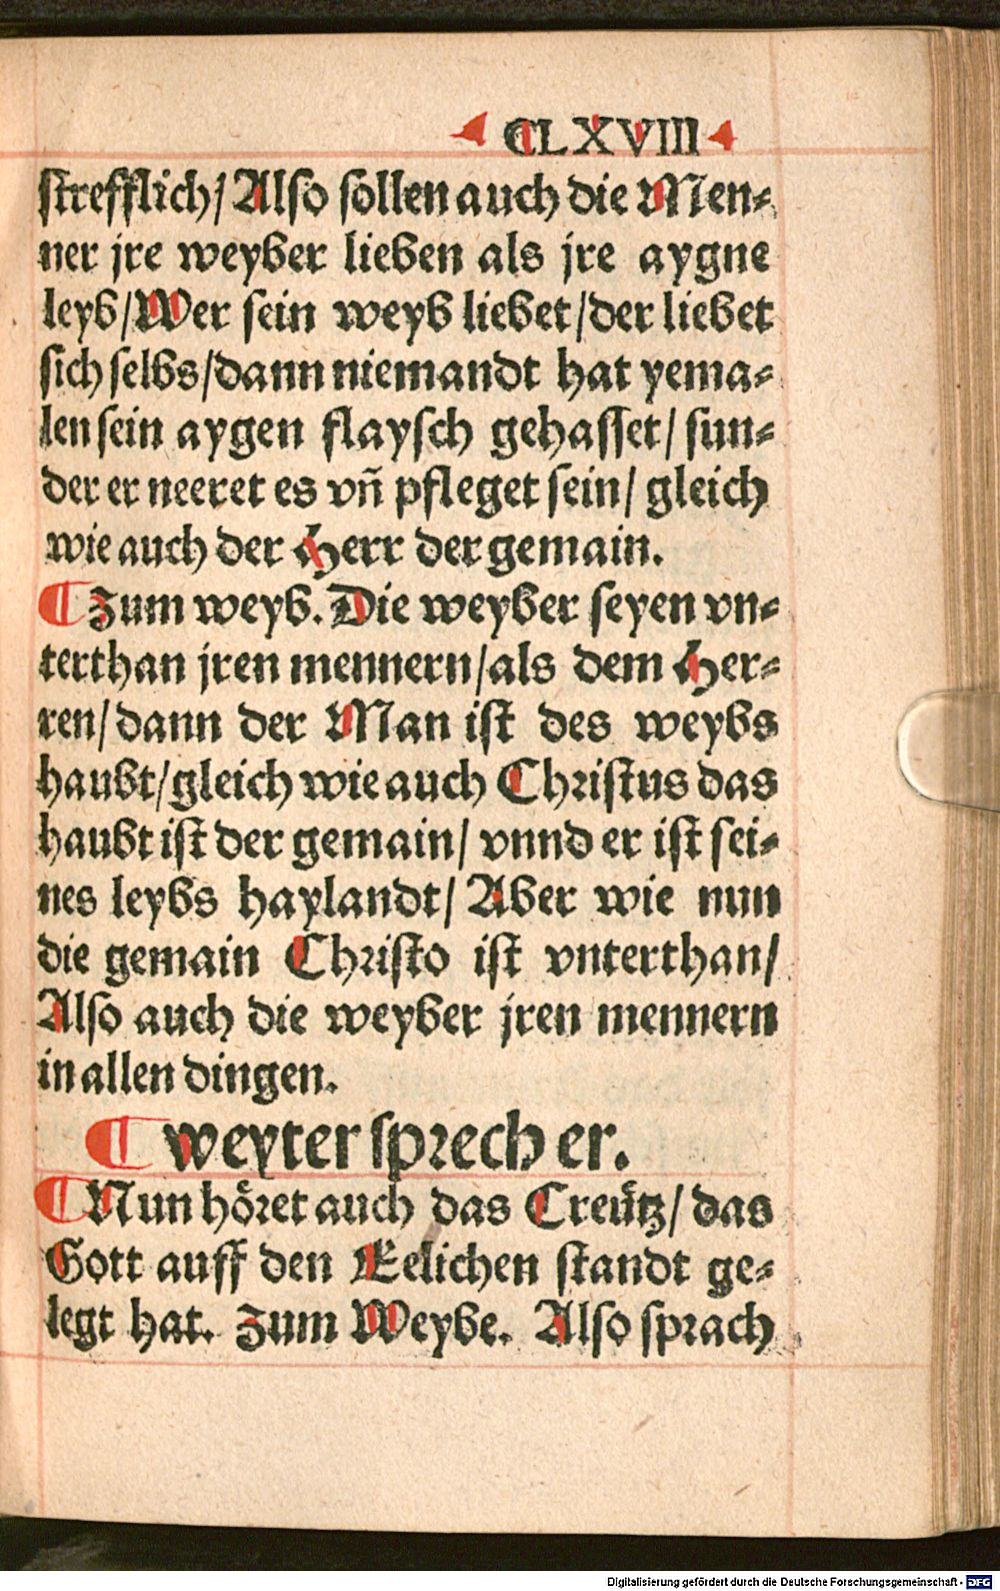 CLXVIII
strefflich/ Also sollen auch die Men⸗
ner jre weyber lieben als jre aygne
leyb/ Wer sein weyb liebet/ der liebet
sich selbs/ dann niemandt hat yema⸗
len sein aygen flaysch gehasset/ sun⸗
der er neeret es vñ pfleget sein/ gleich
wie auch der Herr der gemain.
¶ Zum weyb. Die weyber seyen vn⸗
terthan jren mennern/ als dem Her⸗
ren/ dann der Man ist des weybs
haubt/ gleich wie auch Christus das
haubt ist der gemain/ vnnd er ist sei⸗
nes leybs haylandt/ Aber wie nun
die gemain Christo ist vnterthan/
Also auch die weyber jren mennern
in allen dingen.
¶ weyter sprech er.
¶ Nun hoͤret auch das Creuͤtz/ das
Gott auff den Eelichen standt ge⸗
legt hat. Zum Weybe. Also sprach
Digitalisierung gefördert durch die Deutsche Forschungsgemeinschaft - DFG